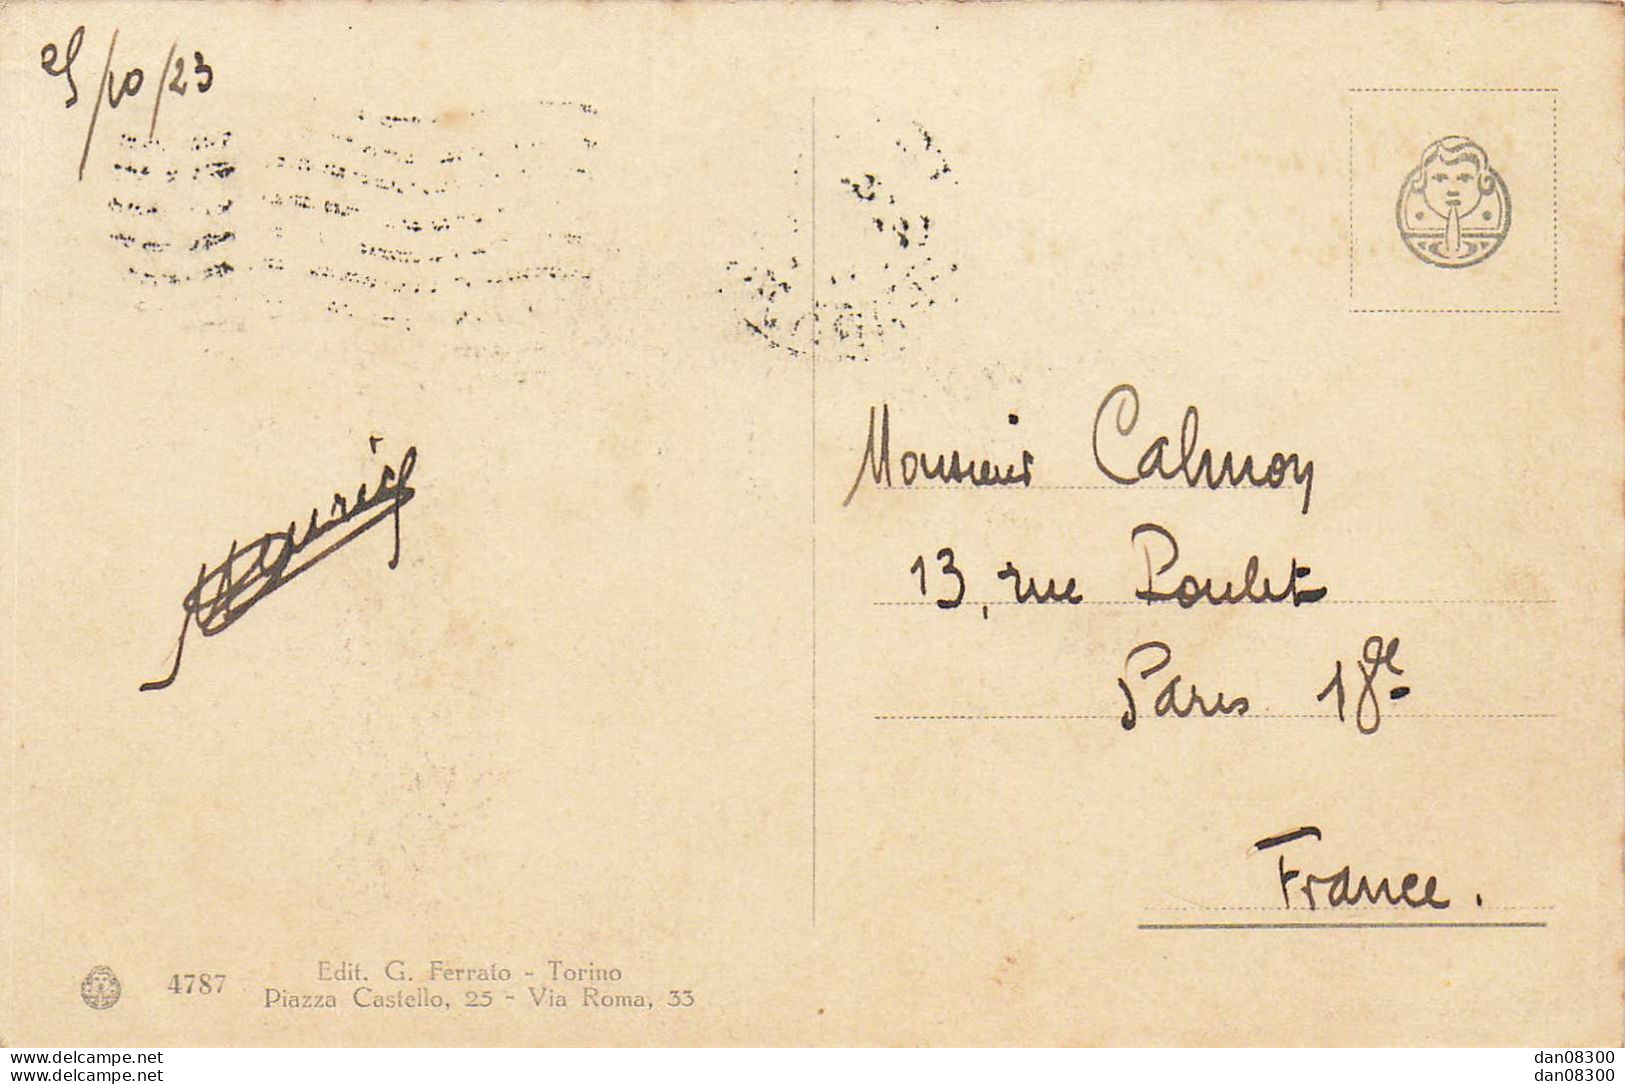 25/10/23
Maurice
Monsieur Calmon
13, rue Poulet
Paris 18e
France.
4787
Edit. G. Ferrato - Torino
Piazza Castello, 25 - Via Roma, 33
www.delcampe.net
www.delcampe.net
dan08300
dan08300